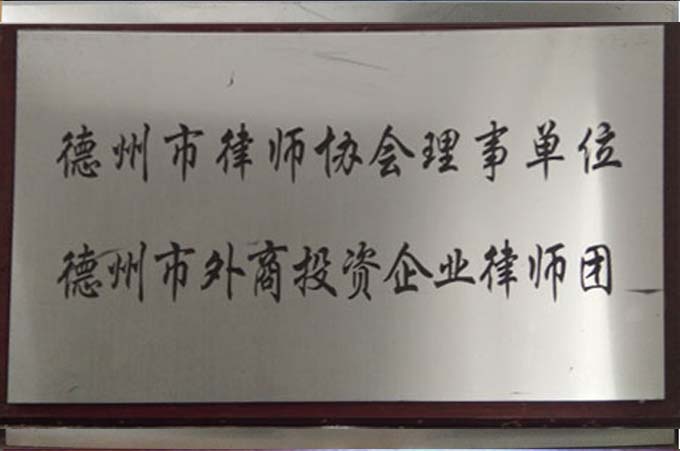 德州市律师协会理事单位
德州市外商投资企业律师团